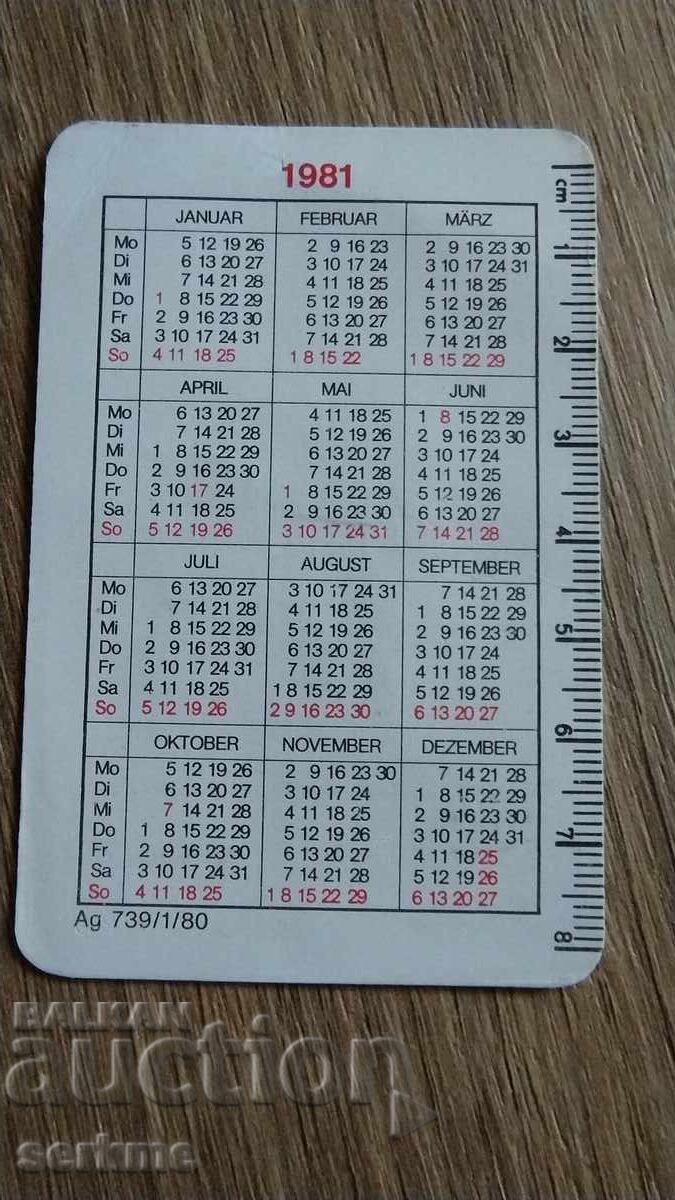 1981
JANUAR FEBRUAR MÄRZ
Mo 5 12 19 26 2 9 16 23 2 9 16 23 30
Di 6 13 20 27 3 10 17 24 3 10 17 24 31
Mi 7 14 21 28 4 11 18 25 4 11 18 25
Do 1 8 15 22 29 5 12 19 26 5 12 19 26
Fr 2 9 16 23 30 6 13 20 27 6 13 20 27
Sa 3 10 17 24 31 7 14 21 28 7 14 21 28
So 4 11 18 25 1 8 15 22 1 8 15 22 29
APRIL MAI JUNI
Mo 6 13 20 27 4 11 18 25 1 8 15 22 29
Di 7 14 21 28 5 12 19 26 2 9 16 23 30
Mi 1 8 15 22 29 6 13 20 27 3 10 17 24
Do 2 9 16 23 30 7 14 21 28 4 11 18 25
Fr 3 10 17 24 1 8 15 22 29 5 12 19 26
Sa 4 11 18 25 2 9 16 23 30 6 13 20 27
So 5 12 19 26 3 10 17 24 31 7 14 21 28
JULI AUGUST SEPTEMBER
Mo 6 13 20 27 3 10 17 24 31 7 14 21 28
Di 7 14 21 28 4 11 18 25 1 8 15 22 29
Mi 1 8 15 22 29 5 12 19 26 2 9 16 23 30
Do 2 9 16 23 30 6 13 20 27 3 10 17 24
Fr 3 10 17 24 31 7 14 21 28 4 11 18 25
Sa 4 11 18 25 1 8 15 22 29 5 12 19 26
So 5 12 19 26 2 9 16 23 30 6 13 20 27
OKTOBER NOVEMBER DEZEMBER
Mo 5 12 19 26 2 9 16 23 30 7 14 21 28
Di 6 13 20 27 3 10 17 24 1 8 15 22 29
Mi 7 14 21 28 4 11 18 25 2 9 16 23 30
Do 1 8 15 22 29 5 12 19 26 3 10 17 24 31
Fr 2 9 16 23 30 6 13 20 27 4 11 18 25
Sa 3 10 17 24 31 7 14 21 28 5 12 19 26
So 4 11 18 25 1 8 15 22 29 6 13 20 27
Ag 739/1/80
cm 1 2 3 4 5 6 7 8
BALKAN
auction
serkme